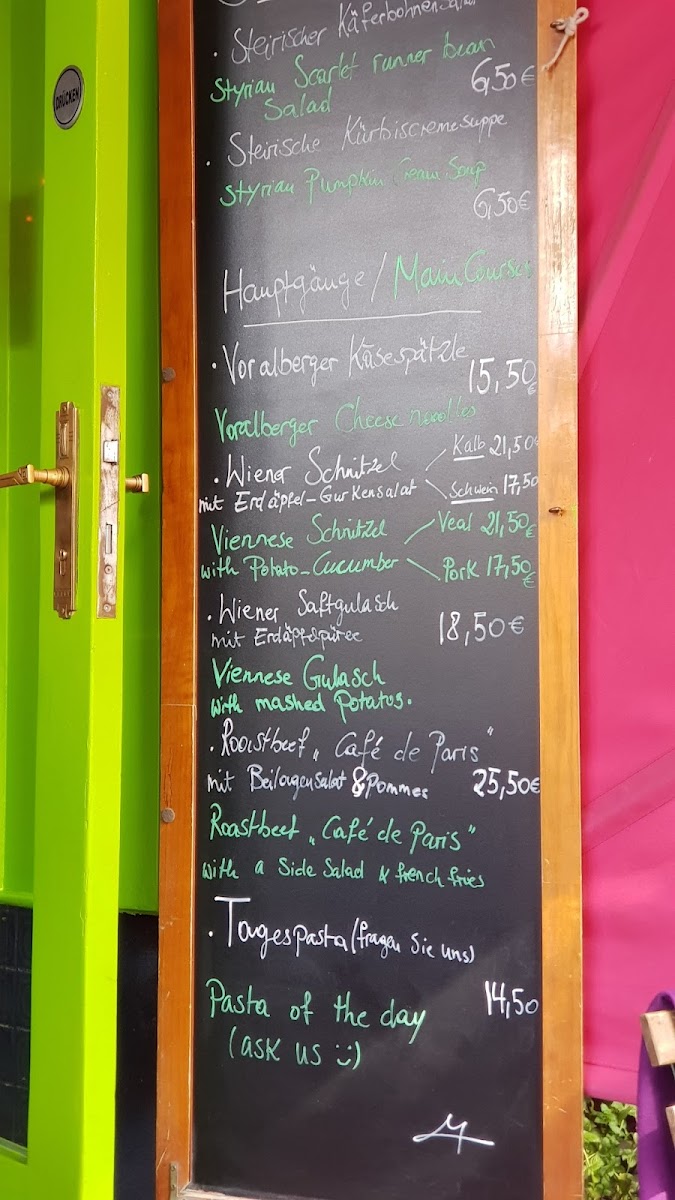 DRÜCKEN
· Steirischer Käferbohnensalat
Styrian Scarlet runner bean
Salad
6,50€
· Steirische Kürbiscremesuppe
Styrian Pumpkin Cream Soup
6,50€
Hauptgänge / Main Courses
· Voralberger Käsespätzle
15,50€
Voralberger Cheese noodles
· Wiener Schnitzel
Kalb 21,50€
mit Erdäpfel-Gurkensalat
Schwein 17,50
Viennese Schnitzel
Veal 21,50€
with Potato-Cucumber
Pork 17,50€
· Wiener Saftgulasch
mit Erdäpfelpüree
18,50€
Viennese Gulasch
with mashed Potatos.
· Roastbeef „Café de Paris"
mit Beilagensalat & Pommes
25,50€
Roastbeef „Café de Paris"
with a Side Salad & french fries
· Tagespasta (fragen Sie uns)
14,50
Pasta of the day
(ask us :))